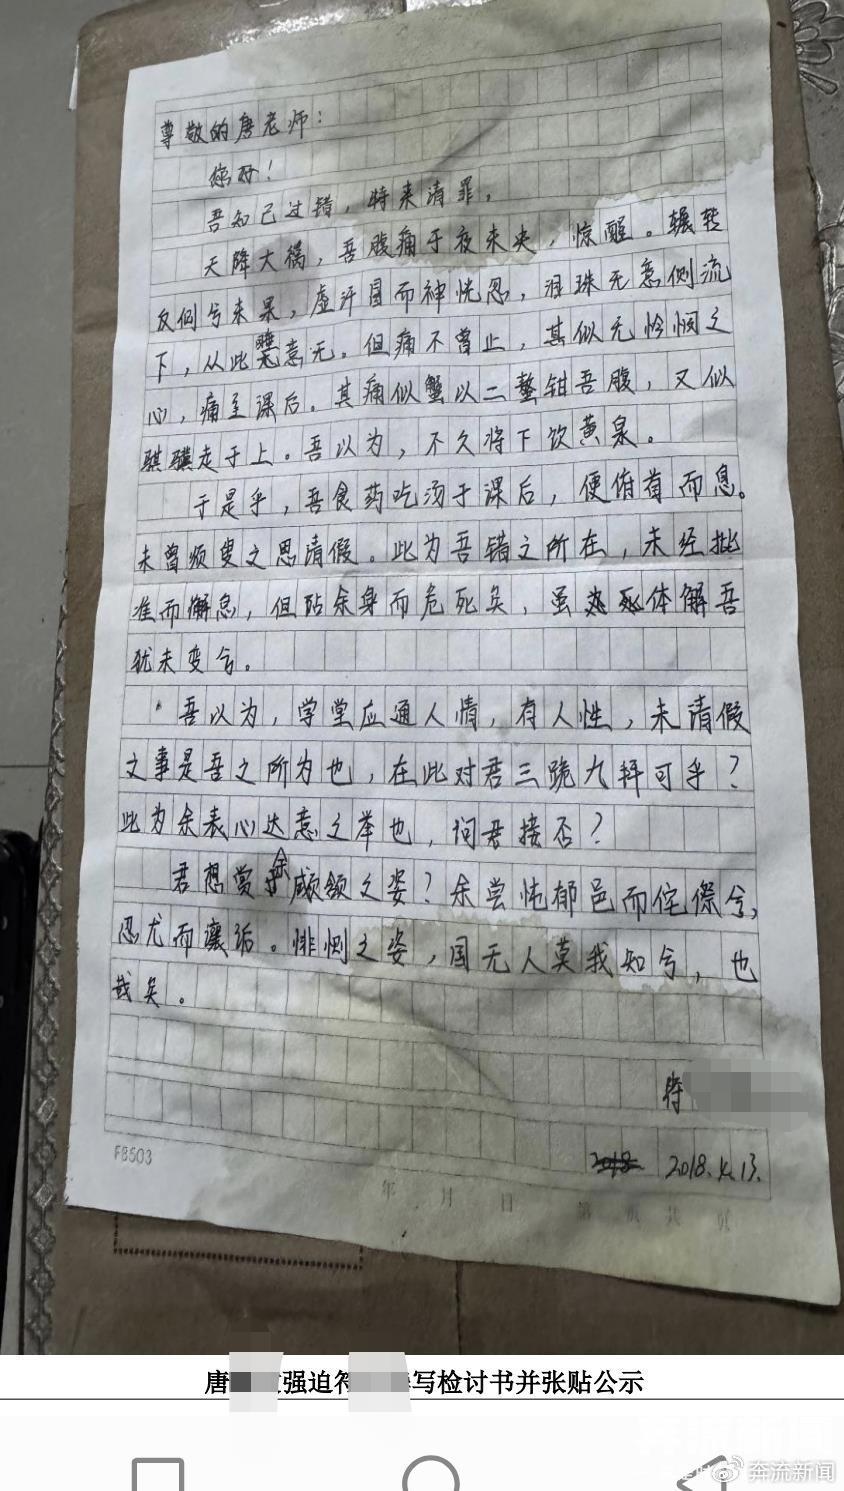 尊敬的唐老师：
您好！
吾知己过错，特来清罪，
天降大祸，吾腹痛于夜未央，惊醒。辗转
反侧兮未果，虚汗冒而神恍忽，泪珠无意侧流
下，从此意无。但痛不曾止，其似无怜悯之
心，痛至课后。其痛似蟹以二螯钳吾腹，又似
骐骥走于上。吾以为，不久将下饮黄泉。
于是乎，吾食药吃汤于课后，便俯首而息。
未曾须臾之思清假。此为吾错之所在，未经批
准而懈怠，但阽余身而危死矣，虽死体解吾
犹未变兮。
吾以为，学堂应通人情，有人性，未清假
之事是吾之所为也，在此对君三跪九拜可乎？
此为余表心达意之举也，问君接否？
君想赏余顑颔之姿？余尝忳郁邑而侘傺兮，
忍尤而攘诟。悱恻之姿，国无人莫我知兮，也
哉矣。
符
2018 2018.4.13.
F8503
年 月 日 第 页 共 页
唐强迫符写检讨书并张贴公示
奔流新闻